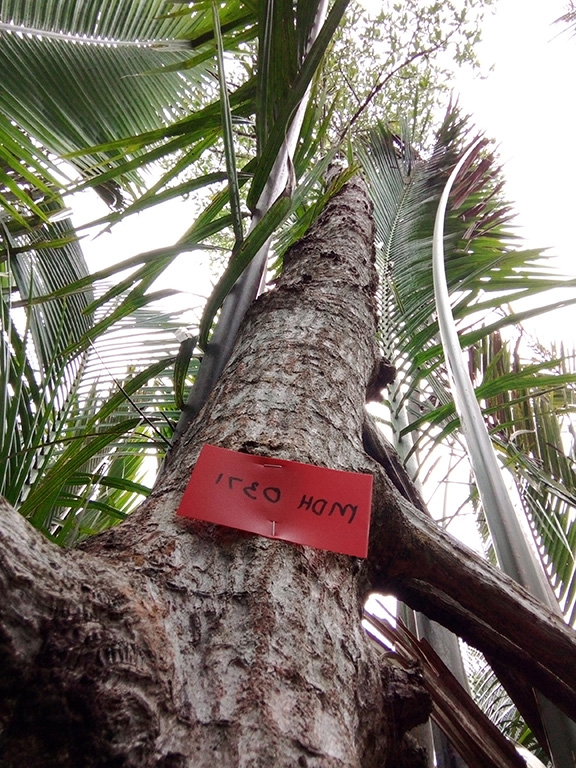 MDH 0371